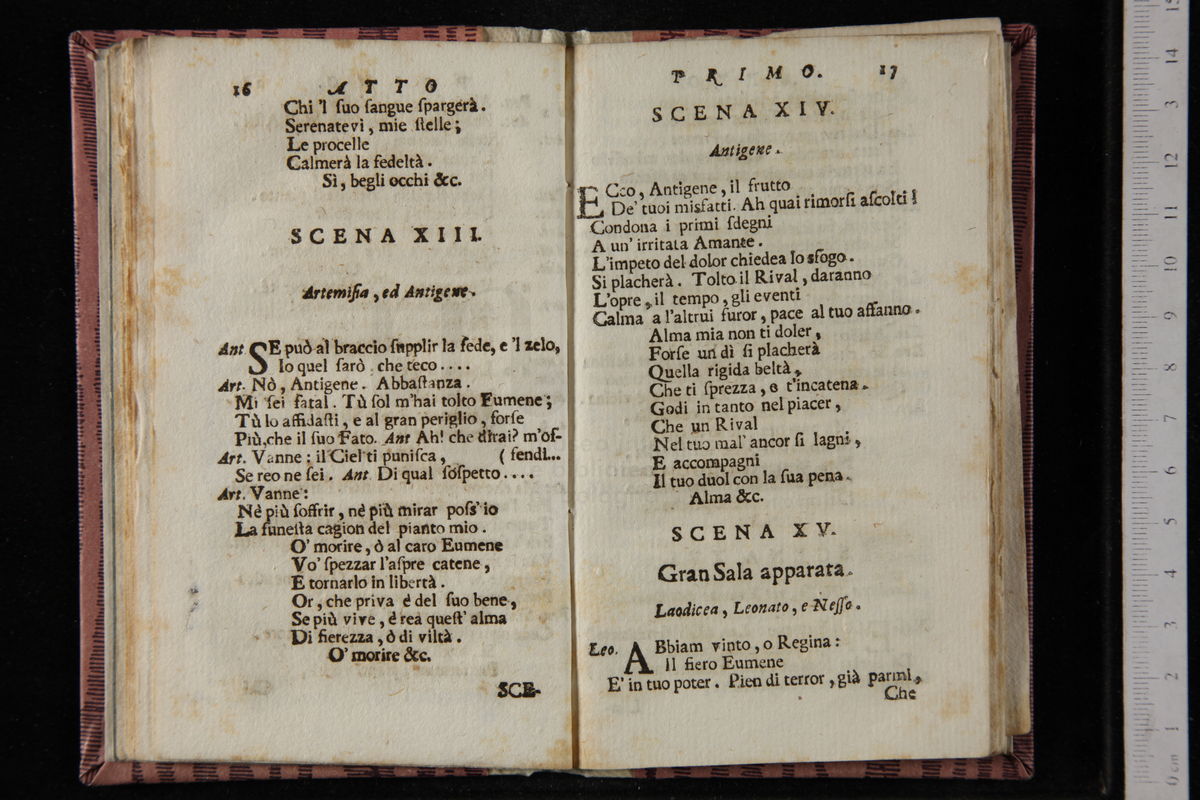 16 ATTO
Chi 'l ſuo ſangue ſpargerà.
Serenatevi, mie ſtelle;
Le procelle
Calmerà la fedeltà.
Sì, begli occhi &c.
SCENA XIII.
Artemiſia, ed Antigene.
Ant SE può al braccio ſupplir la fede, e 'l zelo,
Io quel ſarò che teco....
Art. Nò, Antigene. Abbaſtanza.
Mi ſei fatal. Tù ſol m'hai tolto Eumene;
Tù lo affidaſti, e al gran periglio, forſe
Più, che il ſuo Fato. Ant Ah! che dirai? m'oſ-
Art. Vanne: il Ciel ti puniſca, (fendi...
Se reo ne ſei. Ant Di qual ſoſpetto....
Art. Vanne:
Nè più ſoffrir, nè più mirar poſſ' io
La funeſta cagion del pianto mio.
O' morire, ò al caro Eumene
Vo' ſpezzar l'aſpre catene,
E tornarlo in libertà.
Or, che priva è del ſuo bene,
Se più vive, è rea queſt' alma
Di fierezza, ò di viltà.
O' morire &c.
SCE-
PRIMO. 17
SCENA XIV.
Antigene.
ECco, Antigene, il frutto
De' tuoi misfatti. Ah quai rimorſi aſcolti!
Condona i primi ſdegni
A un' irritata Amante.
L'impeto del dolor chiedea lo sfogo.
Si placherà. Tolto il Rival, daranno
L'opre, il tempo, gli eventi
Calma a l'altrui furor, pace al tuo affanno.
Alma mia non ti doler,
Forſe un dì ſi placherà
Quella rigida beltà,
Che ti ſprezza, e t'incatena.
Godi in tanto nel piacer,
Che un Rival
Nel tuo mal' ancor ſi lagni,
E accompagni
Il tuo duol con la ſua pena.
Alma &c.
SCENA XV.
Gran Sala apparata.
Laodicea, Leonato, e Neſſo.
Leo. ABbiam vinto, o Regina:
Il fiero Eumene
E' in tuo poter. Pien di terror, già parmi,
Che
15
14
3
12
11
10
9
8
7
6
5
4
3
2
1
0 cm